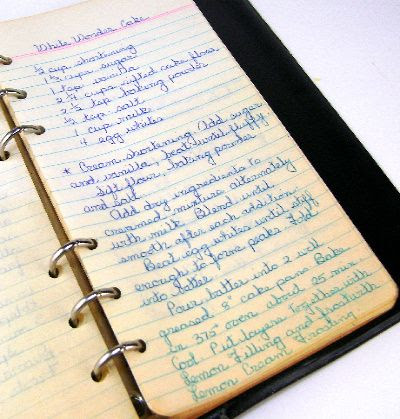 White Wonder Cake
½ cup shortening
1½ cups sugar
1 tsp vanilla
2¼ cups sifted cake flour
2½ tsp baking powder
½ tsp salt
1 cup milk
4 egg whites
* Cream shortening. Add sugar
and vanilla, beat until fluffy.
Sift flour, baking powder
and salt.
Add dry ingredients to
creamed mixture alternately
with milk. Blend until
smooth after each addition.
Beat egg whites until stiff
enough to form peaks. Fold
into batter.
Pour batter into 2 well
greased 8" cake pans. Bake
in 375° oven about 25 min.
Cool. Put layers together with
Lemon Filling and frost with
Lemon Cream Frosting.